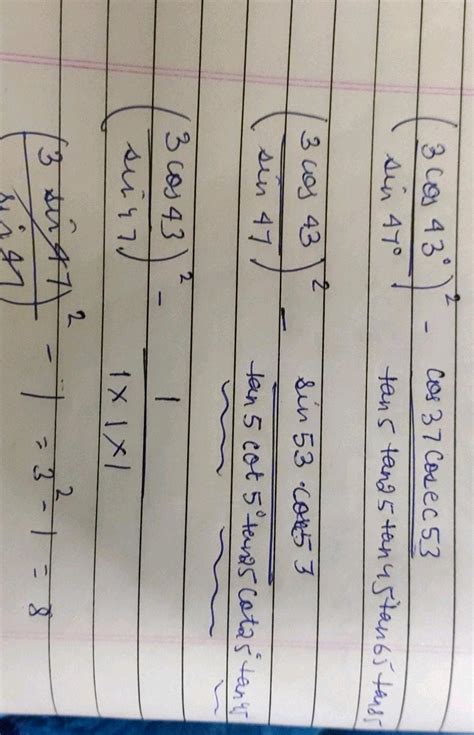 (3 cos 43° / sin 47°)² - cos 37 cosec 53 / tan 5 tan 25 tan 45° tan 65° tan 85
(3 cos 43 / sin 47)² - sin 53 · cosec 53 / tan 5 cot 5° tan 25 cot 25° tan 45
(3 cos 43 / sin 47)² - 1 / 1 × 1 × 1
(3 sin 47 / sin 47)² - 1 = 3² - 1 = 8